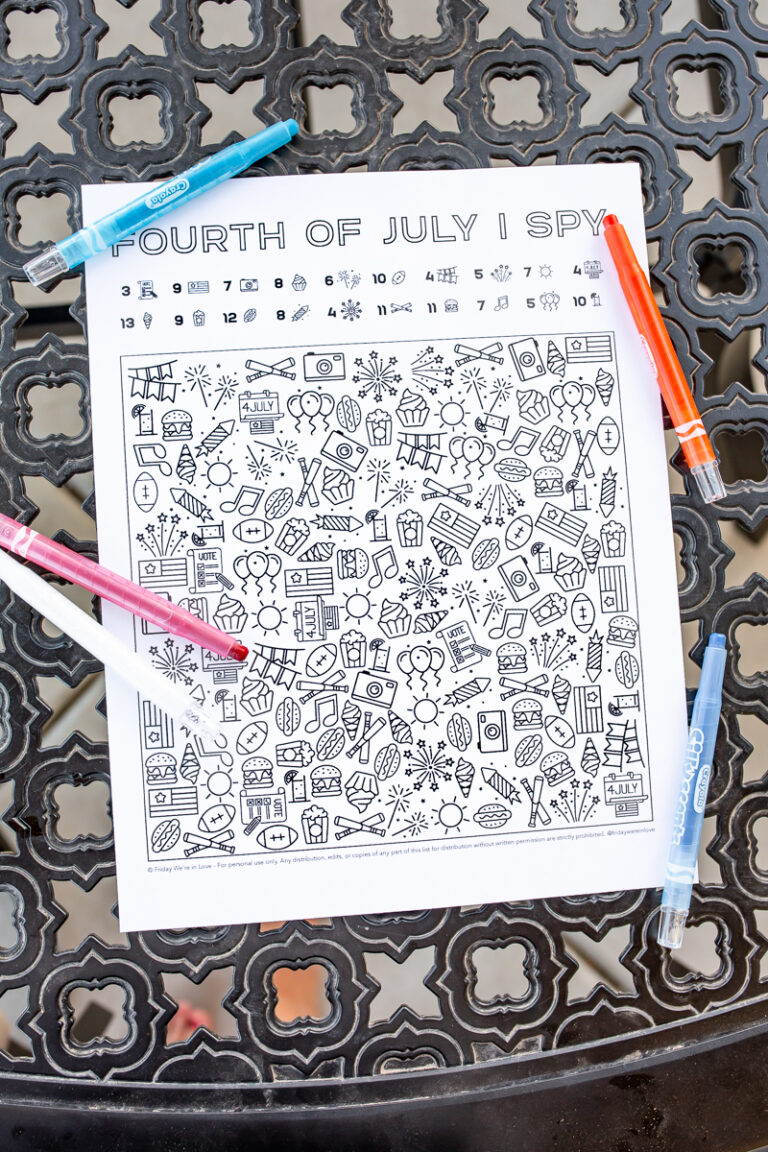 Crayola
FOURTH OF JULY I SPY
3 9 7 8 6 10 4 5 7 4
13 9 12 8 4 11 11 7 5 10
4 JULY
VOTE
4 JULY
4 JULY
VOTE
4 JULY
VOTE
© Friday We're in Love - For personal use only. Any distribution, edits, or copies of any part of this list for distribution without written permission are strictly prohibited. @fridaywereinlove
Crayola